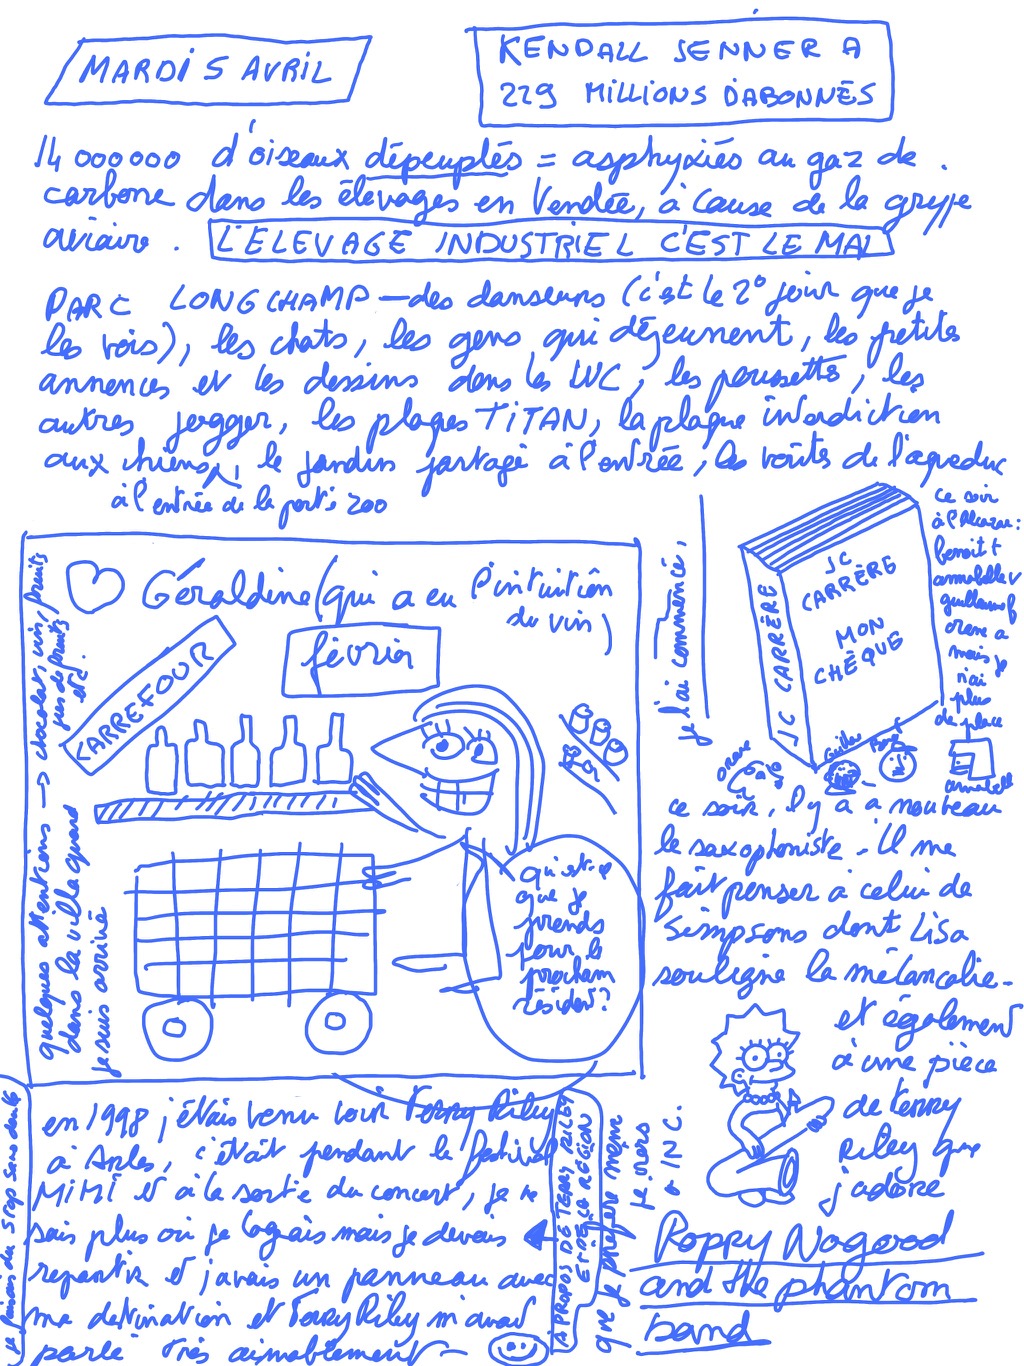 MARDI 5 AVRIL
KENDALL JENNER A
229 MILLIONS D'ABONNÉS
14 000000 d'oiseaux dépeuplés = asphyxiés au gaz de
carbone dans les élevages en Vendée, à cause de la grippe
aviaire. L'ÉLEVAGE INDUSTRIEL C'EST LE MAL
PARC LONGCHAMP — des danseurs (c'est le 2° jour que je
les vois), les chats, les gens qui déjeunent, les petites
annonces et les dessins dans les WC, les poussettes, les
autres jogger, les plaques TITAN, la plaque interdiction
aux chiens, le jardin partagé à l'entrée, les voûtes de l'aqueduc
à l'entrée de la porte zoo
quelques attentions → chocolat, vin, fruits
pas de fruits
etc.
dans la villa quand
je suis arrivé
Géraldine (qui a eu l'intuition
du vin)
CARREFOUR
février
qu'est-ce
que je
prends
pour le
prochain
résident?
je l'ai commencé,
JC CARRÈRE
JC
CARRÈRE
MON
CHÈQUE
ce soir
à l'Alcazar:
benoit +
annabelle v
guillaume
orane a
mais je
n'ai
plus
de place
orane
annabelle
ce soir, il y a à nouveau
le saxophoniste. Il me
fait penser à celui de
Simpsons dont Lisa
souligne la mélancolie.
et également
à une pièce
de Terry
Riley que
j'adore
Poppy Nogood
and the phantom
band
que je préfère même
je vers
à IN C.
À PROPOS DE TERRY RILEY
ET DE LA RÉGION
en 1998 j'étais venu voir Terry Riley
à Arles, c'était pendant le festival
MIMI et à la sortie du concert, je ne
sais plus où je logeais mais je devais
repartir et j'avais un panneau avec
ma destination et Terry Riley m'avait
parlé très aimablement
je faisais du stop sans doute